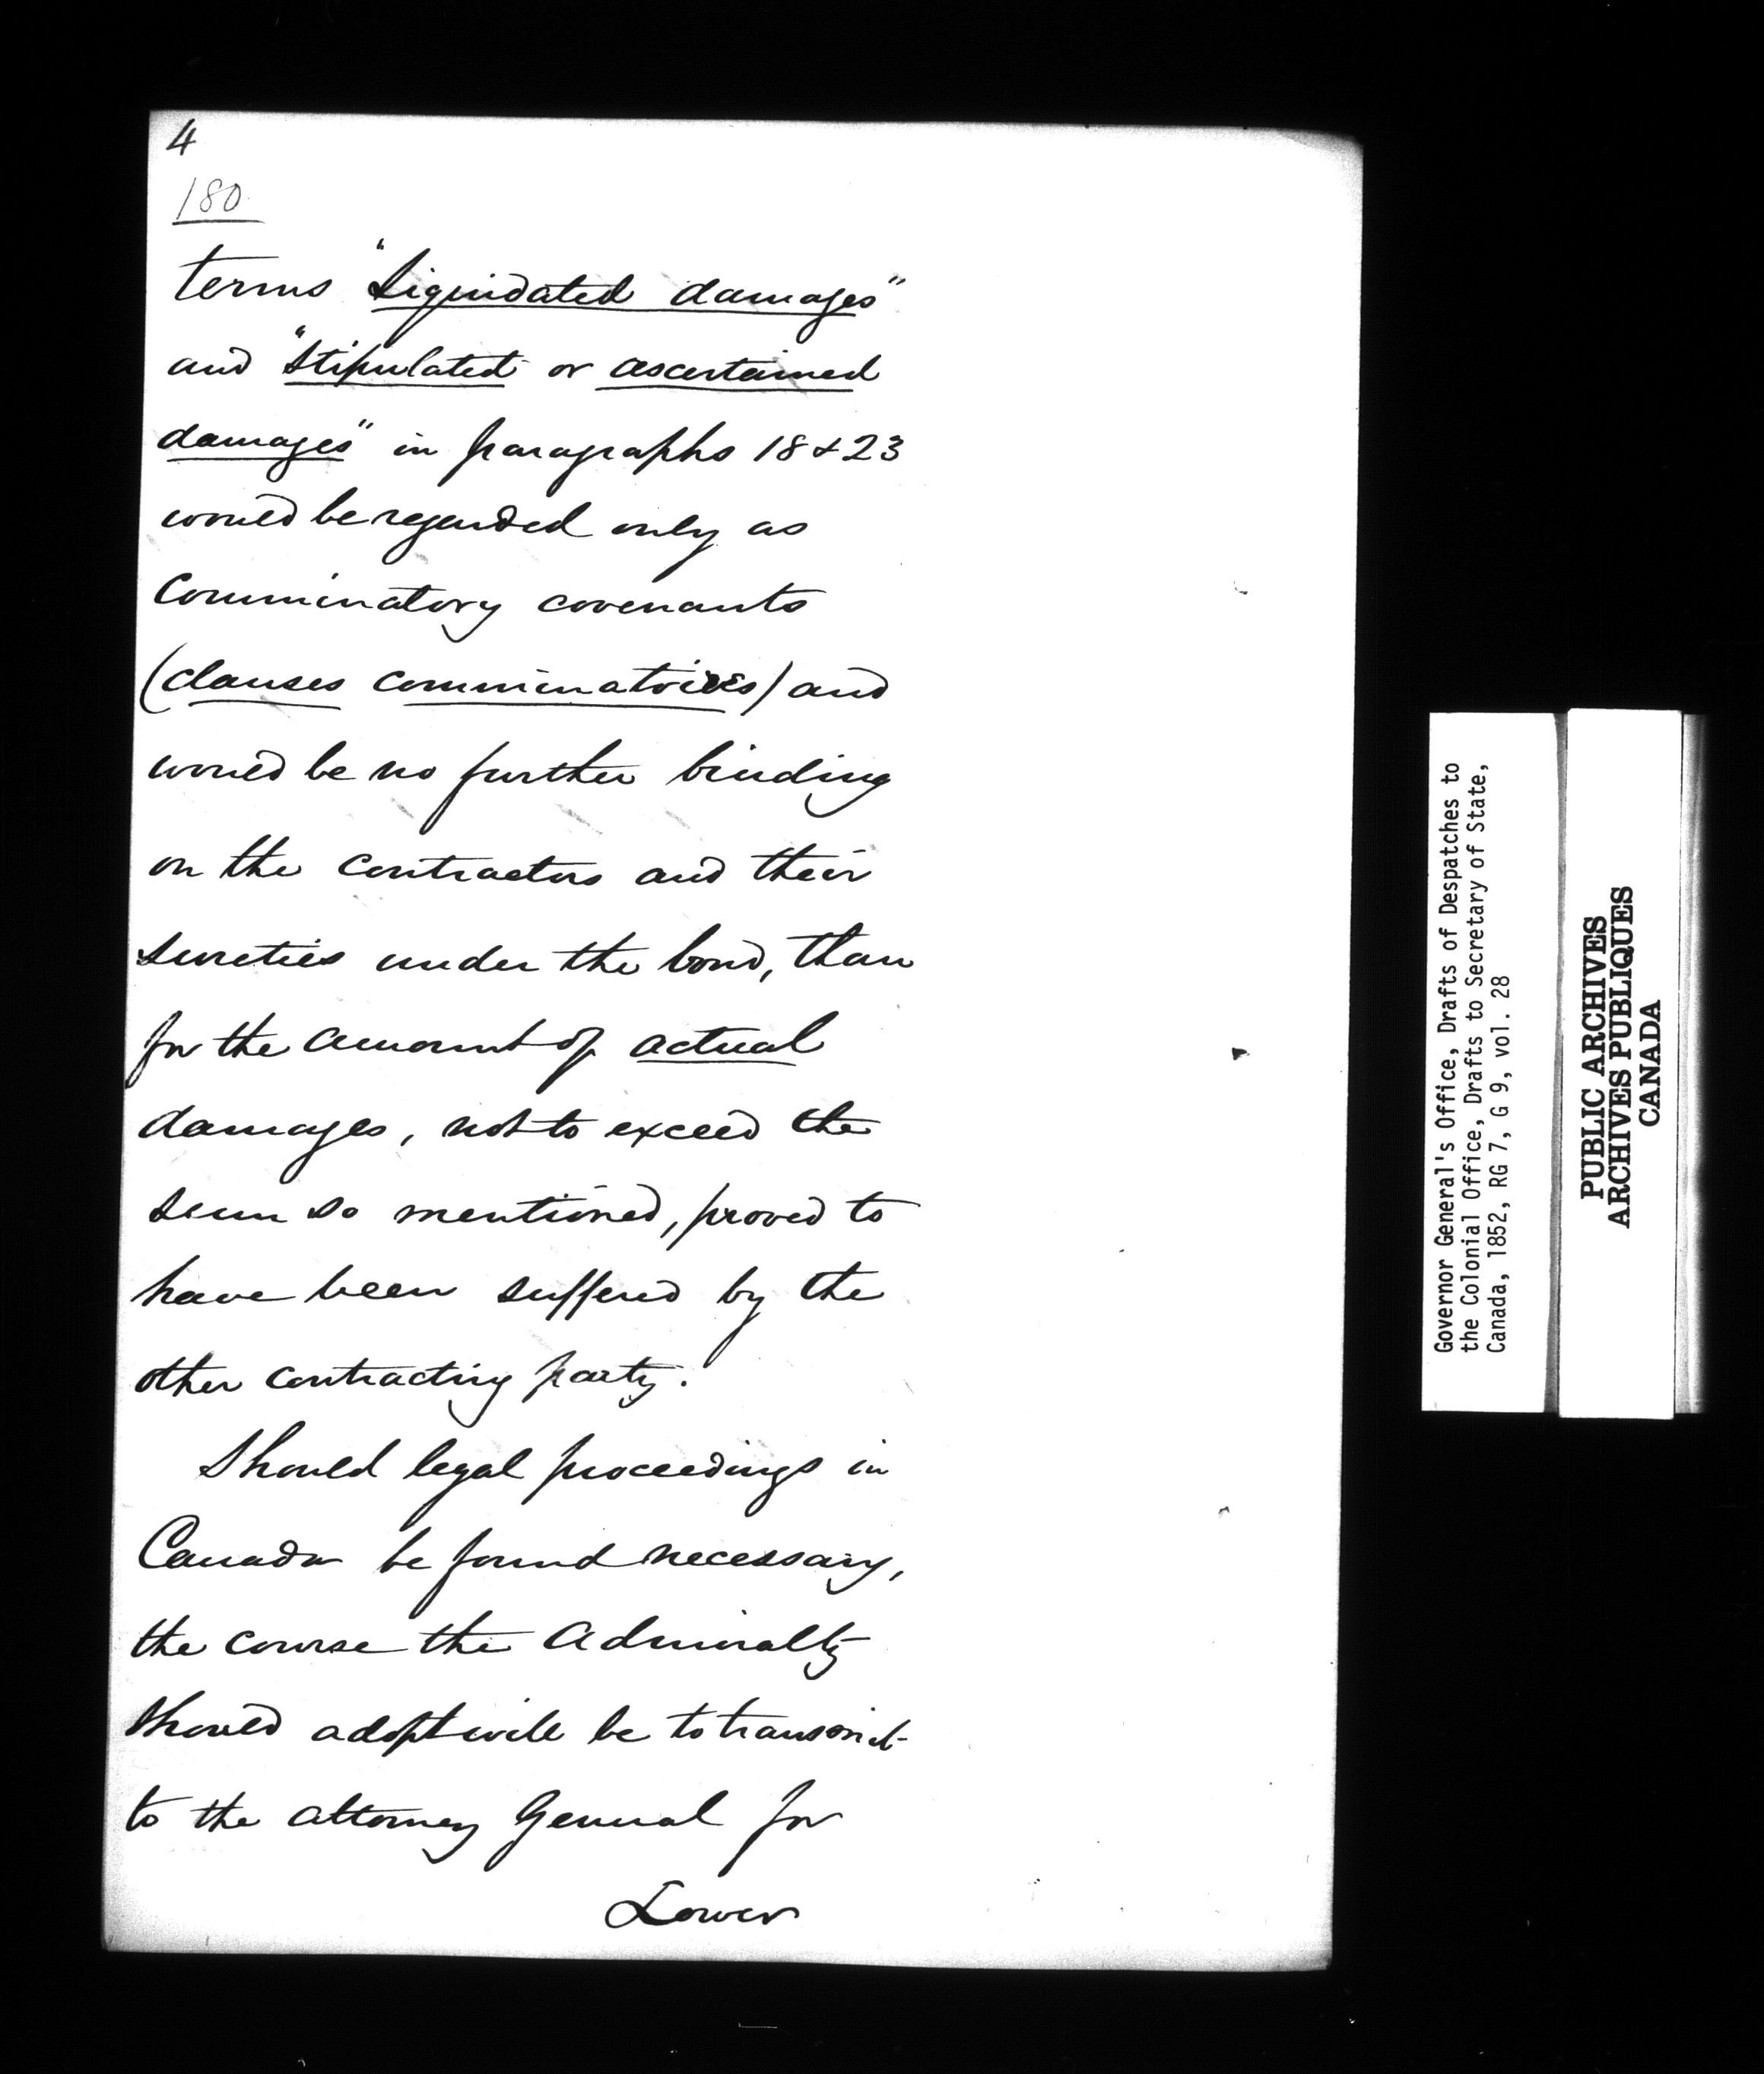 4
180
terms "Liquidated damages"
and "stipulated or ascertained
damages" in paragraphs 18 & 23
would be regarded only as
Comminatory covenants
(clauses comminatoires) and
would be no further binding
on the contractors and their
sureties under the bond, than
for the amount of actual
damages, not to exceed the
sum so mentioned, proved to
have been suffered by the
other contracting party.
Should legal proceedings in
Canada be found necessary,
the course the Admiralty
should adopt will be to transmit
to the Attorney General for
Lower
Governor General's Office, Drafts of Despatches to
the Colonial Office, Drafts to Secretary of State,
Canada, 1852, RG 7, G 9, vol. 28
PUBLIC ARCHIVES
ARCHIVES PUBLIQUES
CANADA